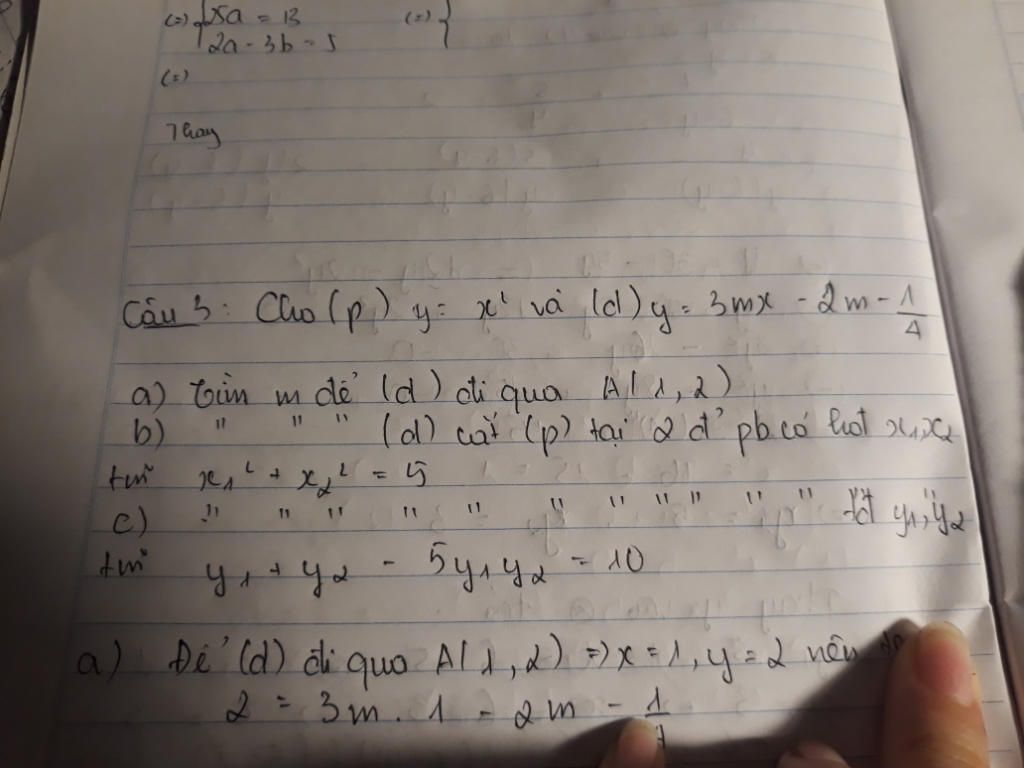 (=) { 5a = 13 (=) {
2a - 3b = 5
(=)
Thay
Câu 3: Cho (p) y = x² và (d) y = 3mx - 2m - 1/4
a) tìm m để (d) đi qua A(1,2)
b) " " " (d) cắt (p) tại 2 đ' pb có hđ x1,x2
tm x1² + x2² = 5
c) " " " " " " " " " " " tđ y1,y2
tm y1 + y2 - 5y1y2 = 10
a) Để (d) đi qua A(1,2) => x = 1, y = 2 nên
2 = 3m . 1 - 2m - 1/4